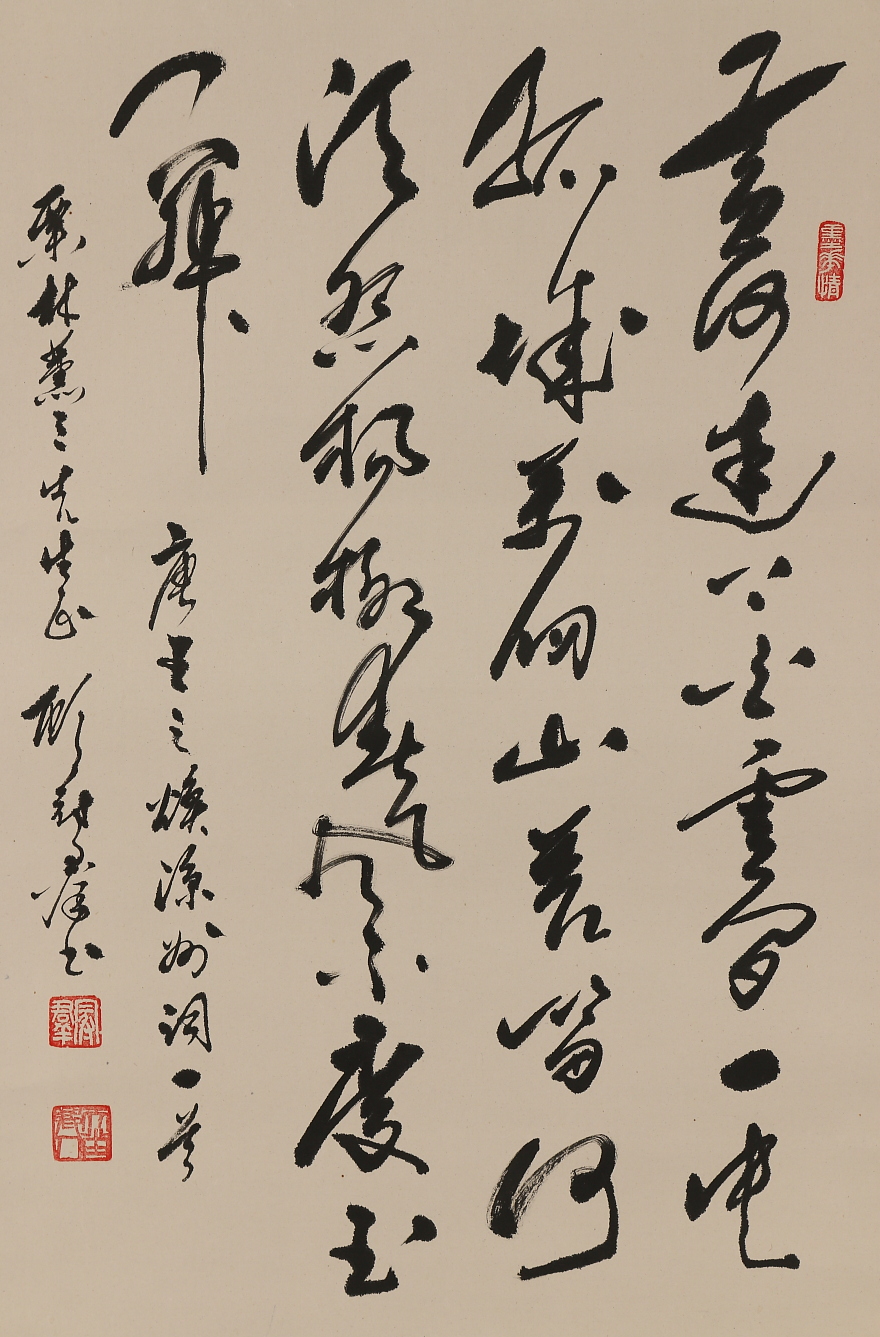 黃河遠上白雲間一片
孤城萬仞山羌笛何
須怨楊柳春風不度玉
門關 唐王之煥涼州詞一首
栗林薰三先生正 書